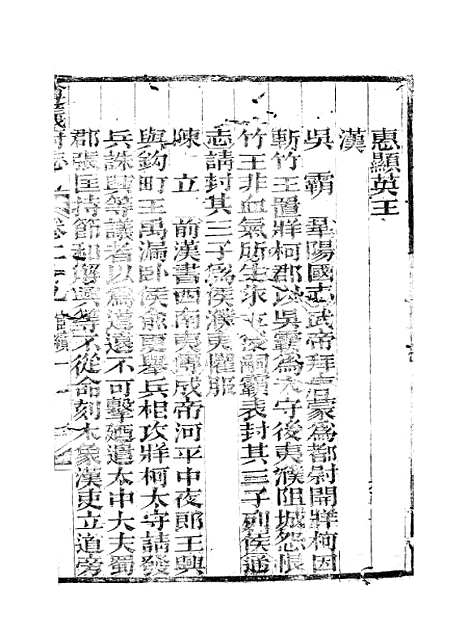 惠顯英王
漢
吳　霸　華陽國志武帝拜唐蒙爲都尉開牂柯因
斬竹王置牂柯郡以吳霸爲太守後夷濮阻城怨恨
竹王非血氣所生求立後嗣霸表封其三子列侯通
志請封其三子爲侯濮夷懼服
陳　立　前漢書西南夷傳成帝河平中夜郎王興
與鉤町王禹漏卧侯兪更舉兵相攻牂柯太守請發
兵誅興等議者以爲道遠不可擊廼遣太中大夫蜀
郡張匡持節和解興等不從命刻木象漢吏立道旁
府志 卷二十九